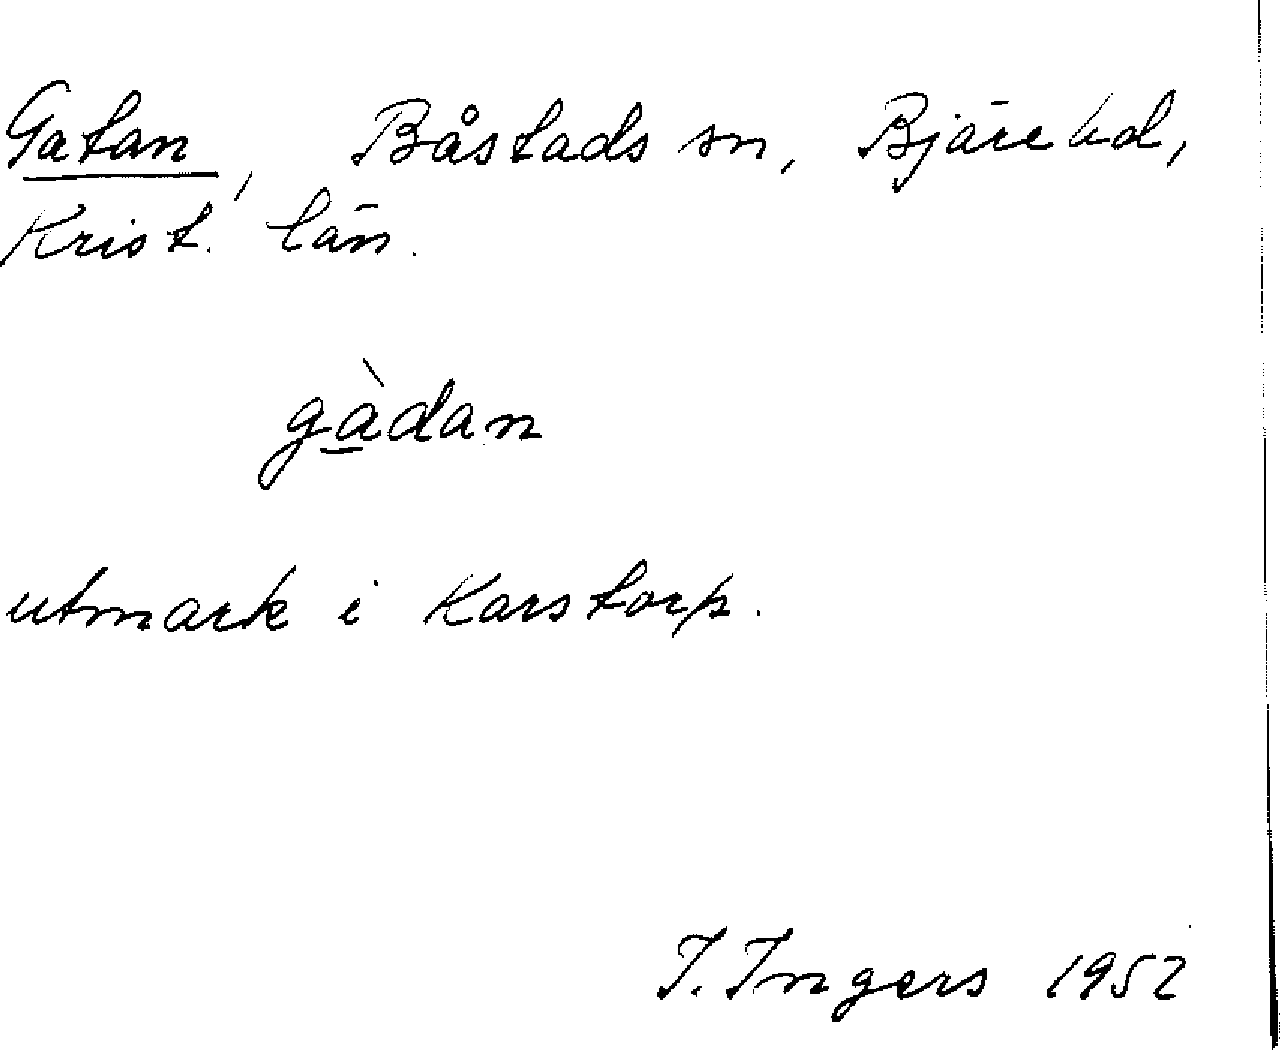 Gatan, Båstads sn, Bjäre hd,
Krist. län.
gàdan
utmark i Karstorp.
I. Ingers 1952